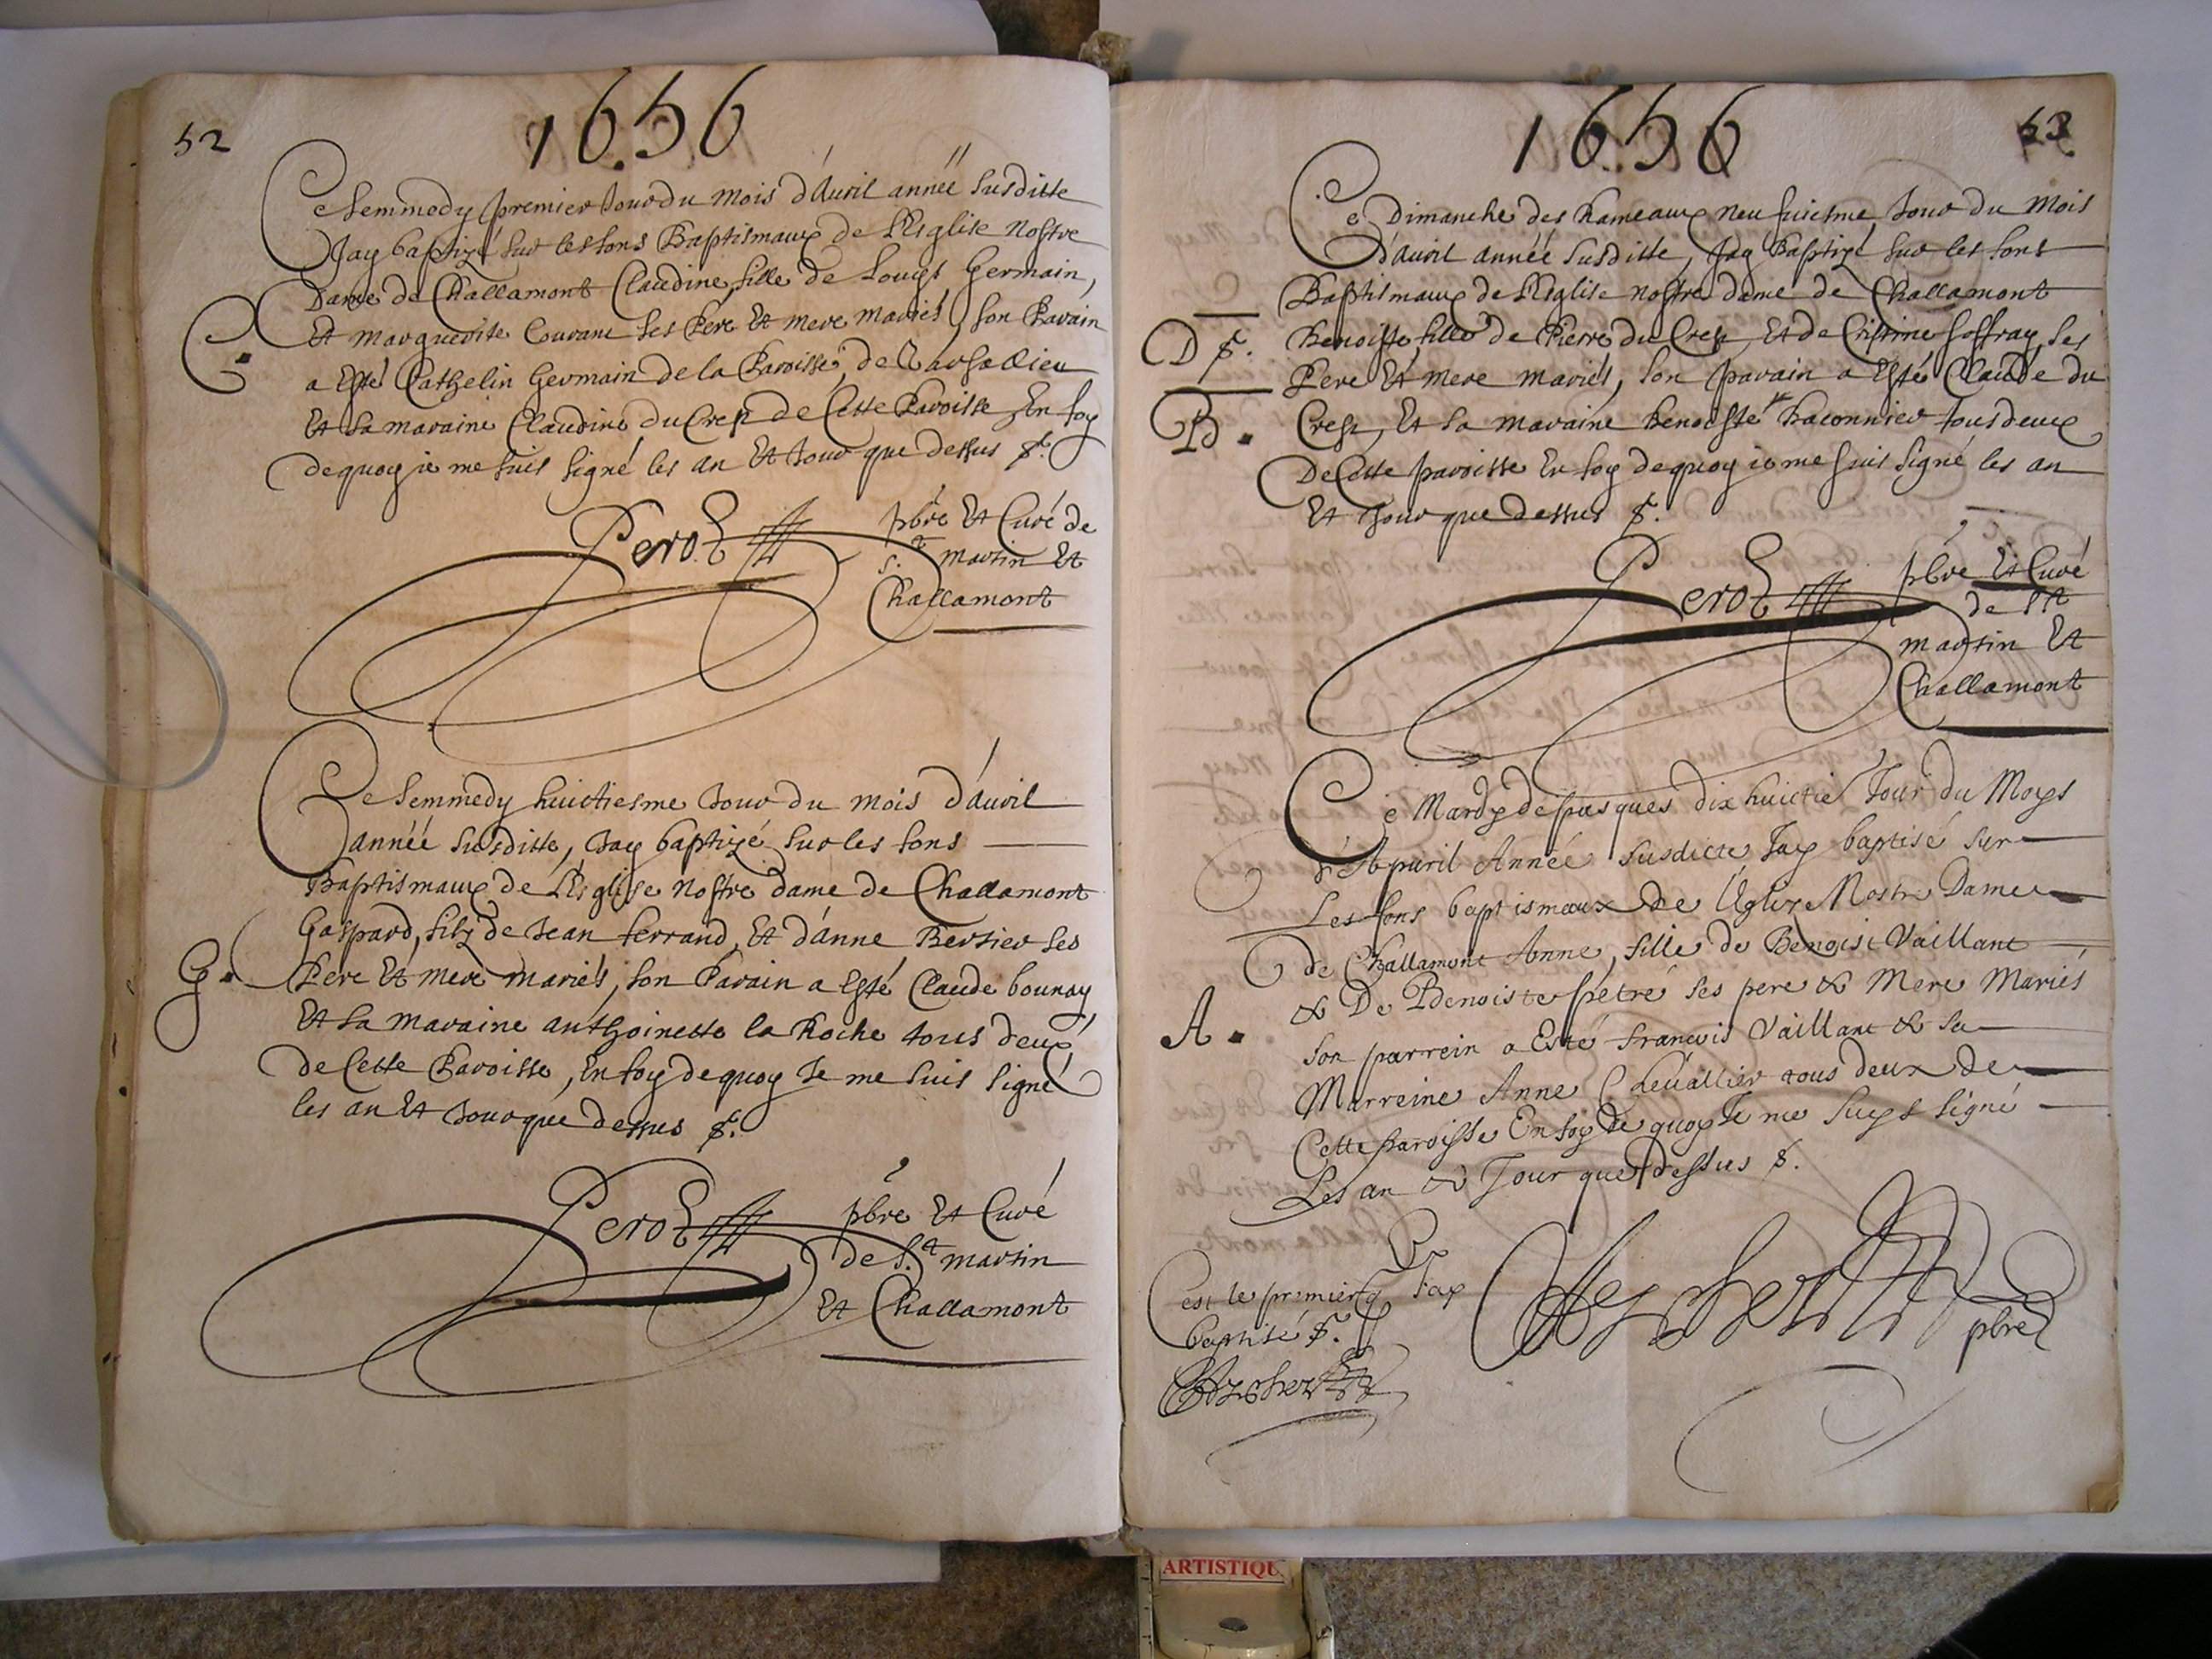 52
1656
Ce Semmedy premier Jour du mois d'Auril année susditte
Jay baptizé sur les fons Baptismaux de L'Eglise nostre
Dame de Challamont Claudine, fille de Louys Germain,
Et marguerite Couvant ses Pere Et mere mariés, son Parain
a Esté Cathelin Germain de la Paroisse, de
Et sa maraine Claudine du Cresp de Cette Paroisse En foy
dequoy ie me suis signé les an Et Jour que dessus
C.
Perot
pbre Et Curé de
St martin Et
Challamont
Ce Semmedy huictiesme Jour du mois d'Auril
année susditte, Jay baptizé sur les fons
Baptismaux de L'Eglise nostre dame de Challamont
Gaspard, filz de Jean ferrand, Et d'Anne Bersier ses
Pere Et mere mariés, son Parain a Esté Claude bounay
Et sa maraine anthoinette la Roche tous deux
de Cette Paroisse, En foy dequoy Je me suis signé
les an Et Jour que dessus
G.
Perot
pbre Et Curé
de St martin
Et Challamont
1656
53
Ce Dimanche des Rameaux neufuiesme Jour du mois
d'auril année susditte, Jay Baptizé sur les fons
Baptismaux de L'Eglise nostre dame de Challamont
Benoiste, fille de Pierre du Cresp, Et de Cristine soffray, ses
Pere Et mere mariés, son parain a Esté Claude du
Cresp, Et sa maraine benoiste baconnier tous deux
De Cette paroisse En foy dequoy ie me suis signé les an
Et Jour que dessus
D
B.
Perot
pbre Et Curé
de St
martin Et
Challamont
Ce Mardy de pasques dix huictie Jour du Moys
d'Apuril Année susdicte Jay baptisé sur
Les fons baptismaux de l'Eglize Nostre Dame
de Challamont Anne, fille de Benoist Vaillant
& De Benoiste petré ses pere & Mere Mariés
son parrein a Esté francois Vaillant & sa
Marreine Anne Cheuallier tous deux de
Cette paroisse En foy de quoy Je me suys signé
Les an & Jour que dessus
A.
Cest le premier q Jay
baptisé
pbre
ARTISTIQU